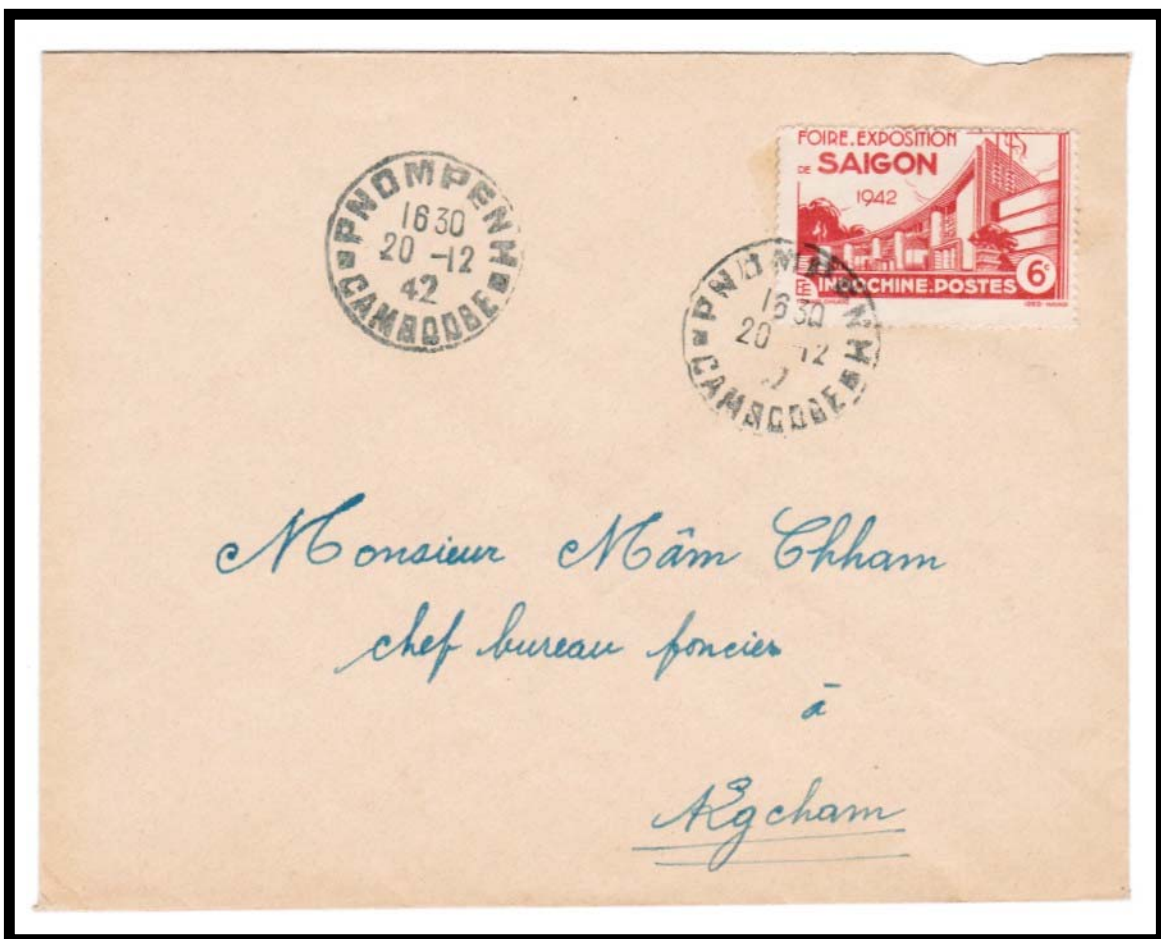 PNOMPENH
16 30
20 -12
42
CAMBODGE
FOIRE.EXPOSITION
DE SAIGON
1942
6c
INDOCHINE.POSTES
PNOMPENH
16 30
20 -12
CAMBODGE
Monsieur Mâm Chham
chef bureau foncier
à
Kgcham